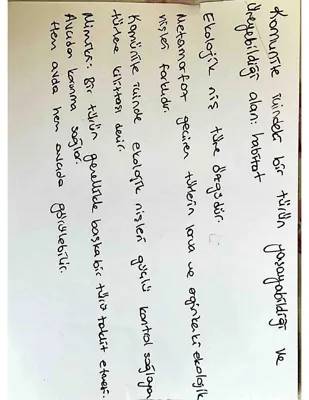 Komünite içindeki bir türün yaşayabildiği ve
üreyebildiği alan: habitat
Ekolojik niş türe özgüdür.
Metamorfoz geçiren türlerin larva ve erginlerinki ekolojik
nişleri farklıdır.
Komünite içinde ekolojik nişleri güçlü kontrol sağlayan
türlere kilittaşı denir.
Mimikri: Bir türün genellikle başka bir türü taklit etmesi.
Avcıdan korunma sağlar.
Hem avda hem avcıda görülebilir.